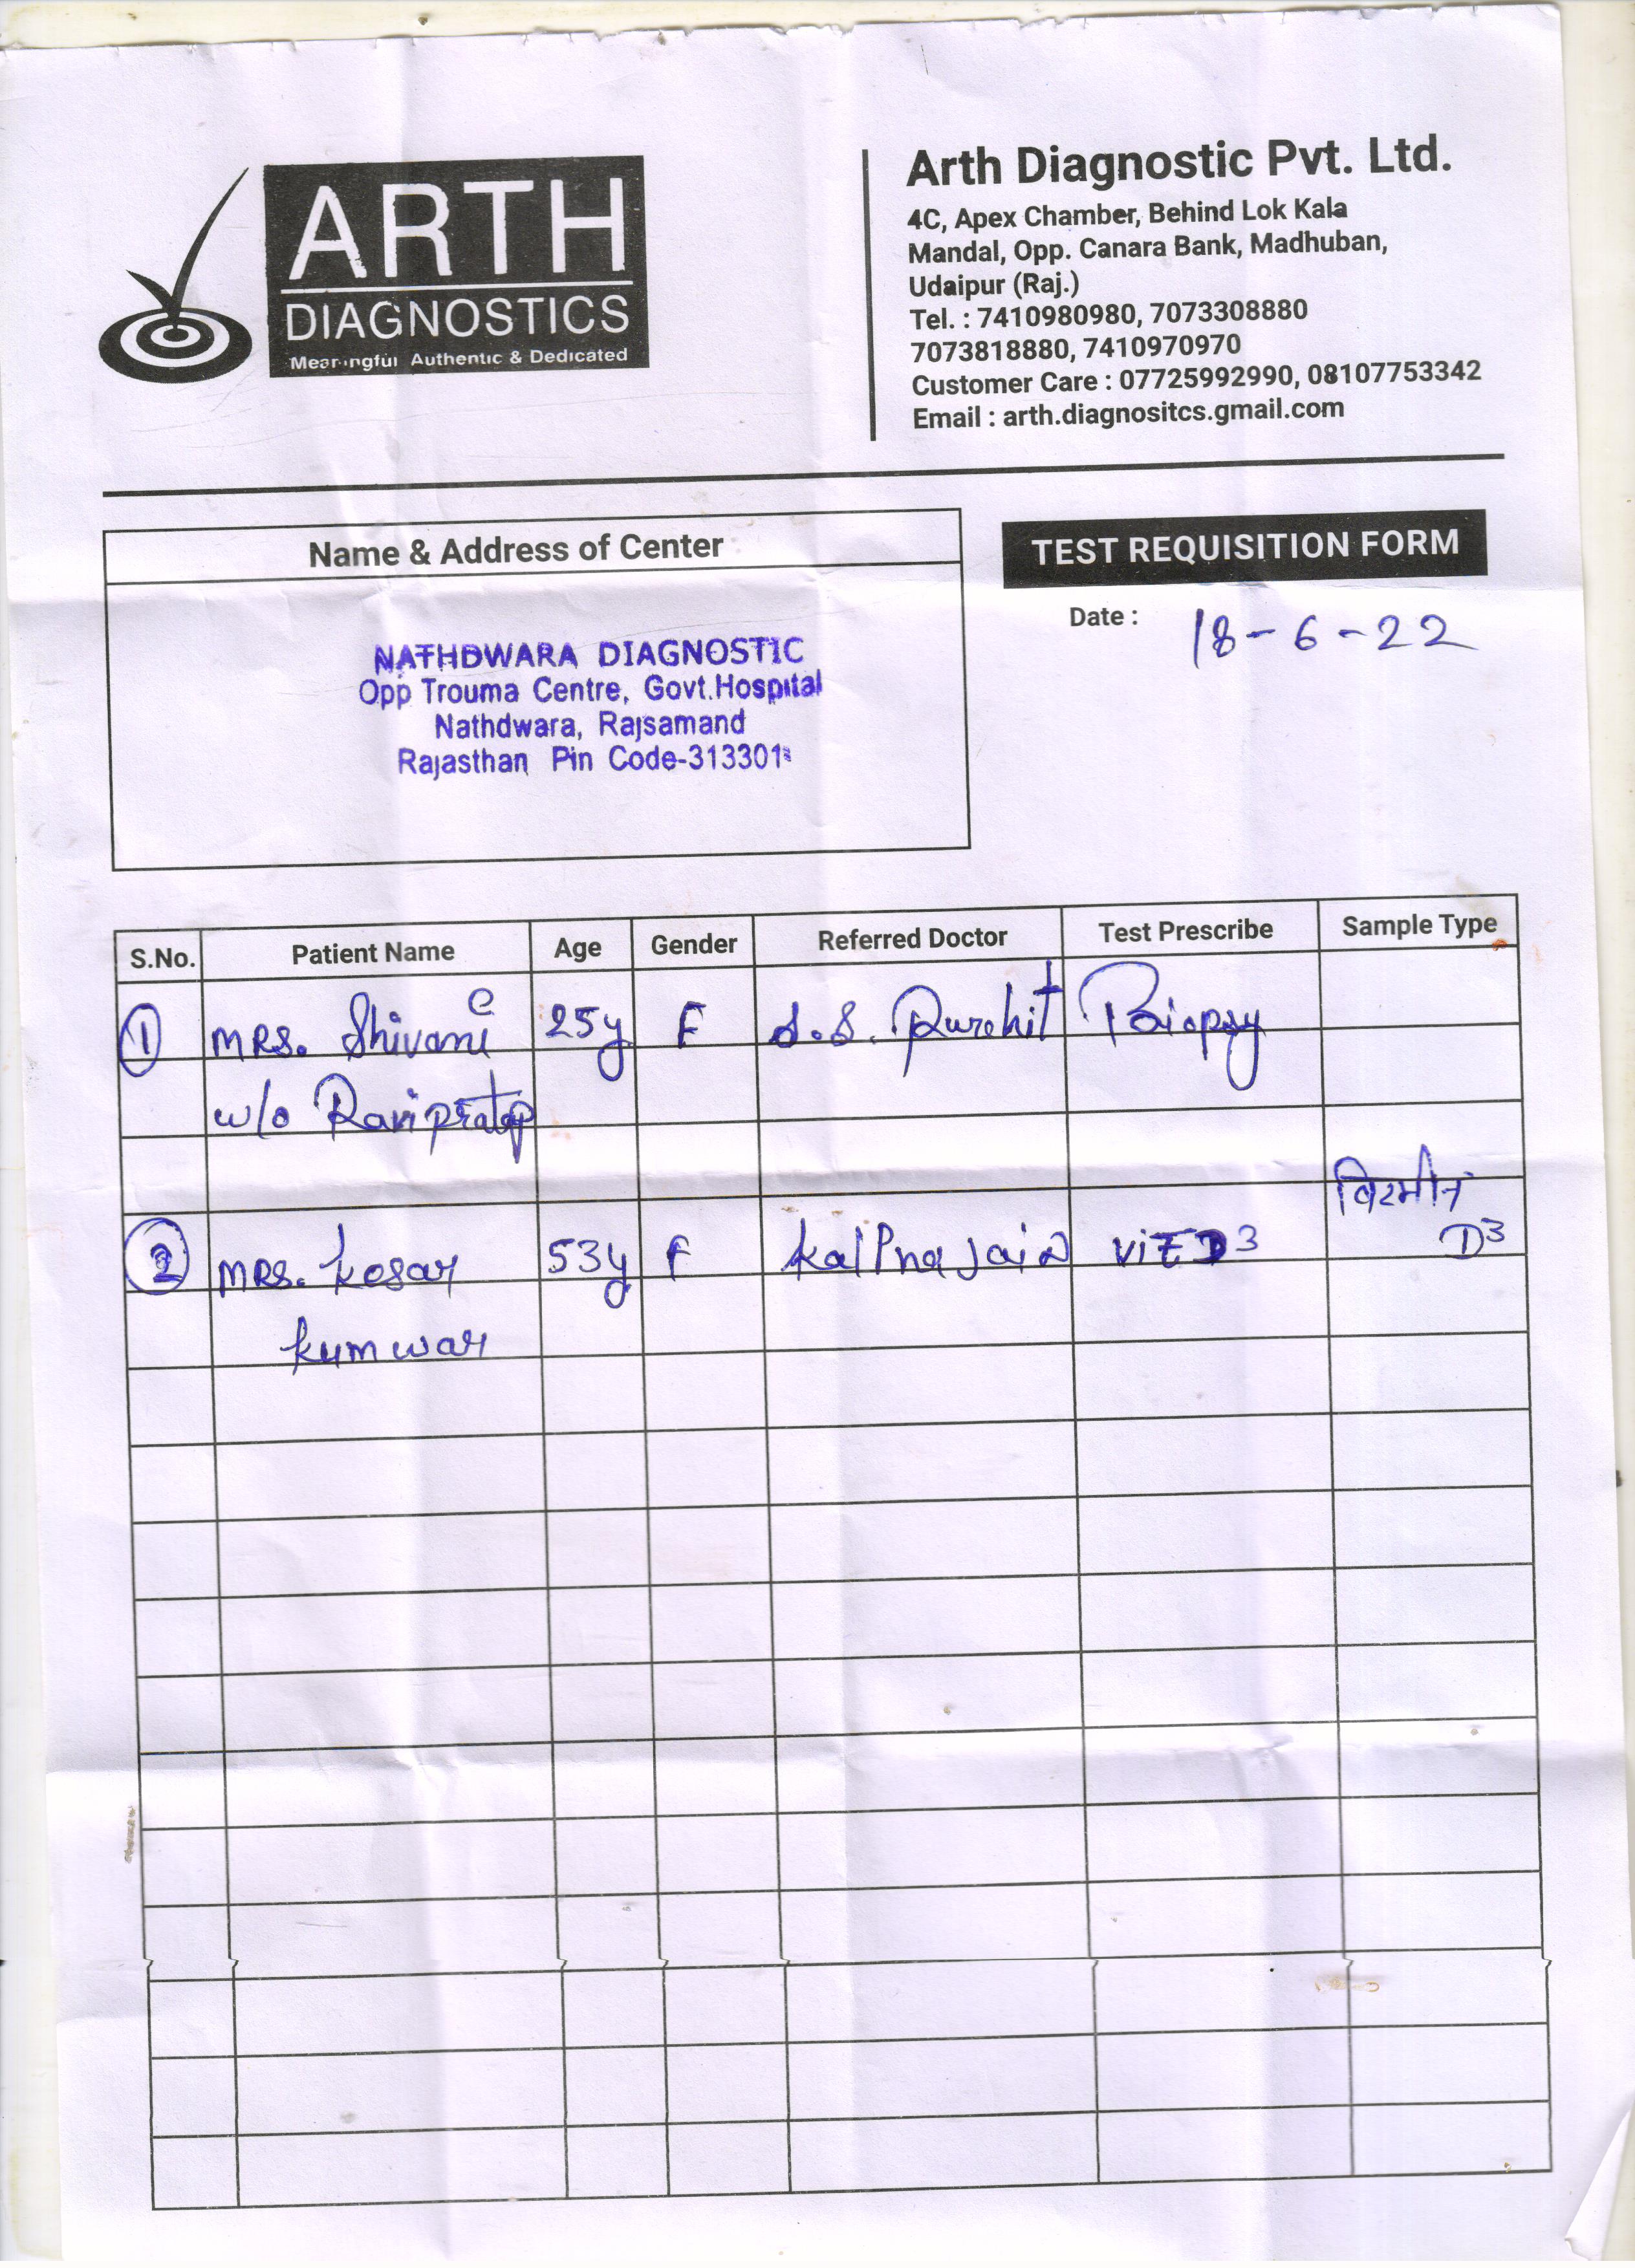 ARTH
DIAGNOSTICS
Meaningful Authentic & Dedicated
Arth Diagnostic Pvt. Ltd.
4C, Apex Chamber, Behind Lok Kala
Mandal, Opp. Canara Bank, Madhuban,
Udaipur (Raj.)
Tel. : 7410980980, 7073308880
7073818880, 7410970970
Customer Care : 07725992990, 08107753342
Email : arth.diagnositcs.gmail.com
Name & Address of Center
NATHDWARA DIAGNOSTIC
Opp Trouma Centre, Govt.Hospital
Nathdwara, Rajsamand
Rajasthan Pin Code-313301
TEST REQUISITION FORM
Date : 18-6-22
S.No. Patient Name Age Gender Referred Doctor Test Prescribe Sample Type
1 MRS. Shivani 25y F S.S. Purohit Biopsy
w/o Ravi Pratap
2 MRS. Kosar 53y F Kalpna Jain Vit D3 D3
Kumwar